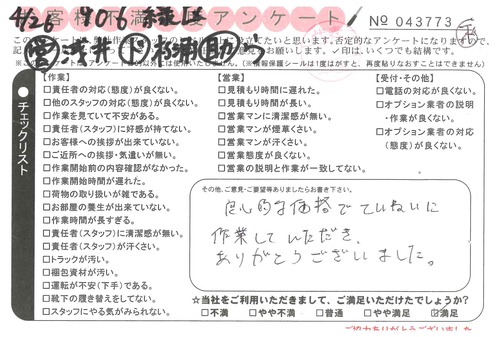 お客様不満足アンケート
4/26 906 緑区
No 043773
営 浅井 ド 杉浦 助
(※個人情報保護シールは1度はがすと、再度貼りなおすことはできません)
チェックリスト
【作業】
□責任者の対応(態度)が良くない。
□他のスタッフの対応(態度)が良くない。
□作業を見ていて不安がある。
□責任者(スタッフ)に好感が持てない。
□お客様への挨拶が出来ていない。
□ご近所への挨拶・気遣いが無い。
□作業開始前の内容確認がなかった。
□作業開始時間が遅れた。
□荷物の取り扱いが雑である。
□お部屋の養生が出来ていない。
□作業時間が長すぎる。
□責任者(スタッフ)に清潔感が無い。
□責任者(スタッフ)が汗くさい。
□トラックが汚い。
□梱包資材が汚い。
□運転が不安(下手)である。
□靴下の履き替えをしてない。
□スタッフにやる気がみられない。
【営業】
□見積もり時間に遅れた。
□見積もり時間が長い。
□営業マンに清潔感が無い。
□営業マンが煙草くさい。
□営業マンが汗くさい。
□営業態度が良くない。
□営業の説明と作業が一致してない。
【受付・その他】
□電話の対応が良くない。
□オプション業者の説明
・作業が良くない。
□オプション業者の対応
(態度)が良くない。
その他、ご意見・ご要望等ありましたらお書き下さい。
良心的な価格でていねいに
作業していただき、
ありがとうございました。
☆当社をご利用いただきまして、ご満足いただけたでしょうか?
□不満 □やや不満 □普通 □やや満足 ☑満足
ご協力ありがとうございました